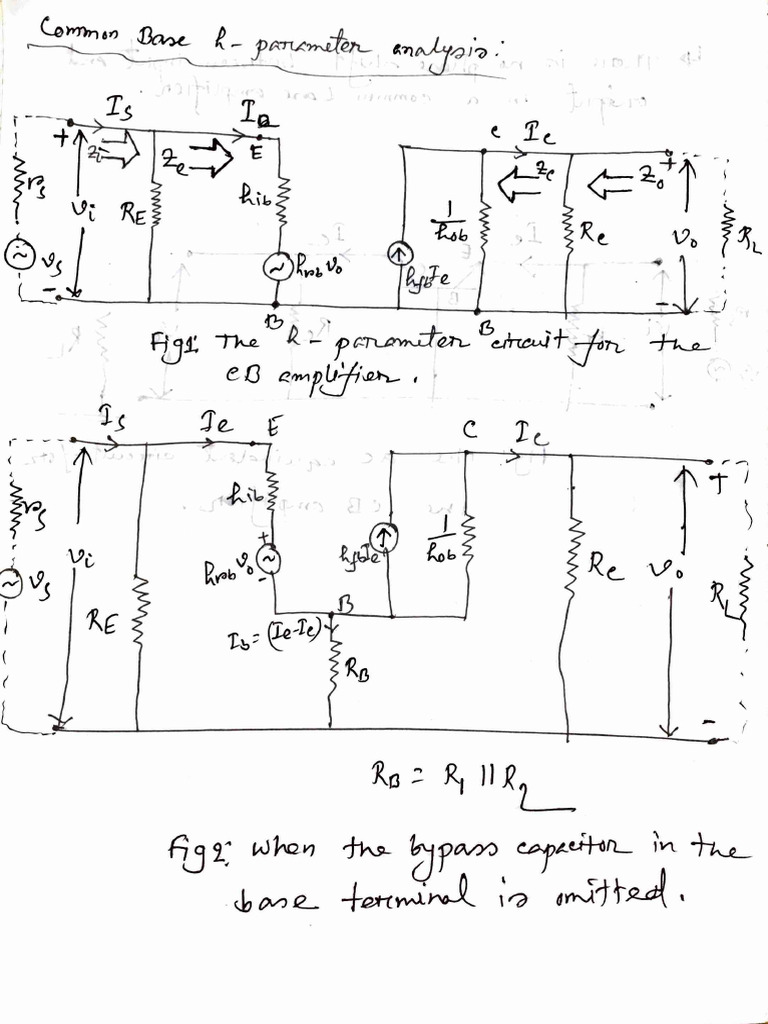 Common Base h-parameter analysis:
Is
Ie
+
Zi
Ze
E
rs
vi
RE
hib
vs
hrb vo
-
B
c
Ic
Zc
Zo
+
1/hob
Rc
vo
RL
hfb Ie
-
B
Fig1: The h-parameter circuit for the
CB amplifier.
Is
Ie
E
C
Ic
rs
vi
vs
RE
hib
hrb vo
+
-
hfb Ie
1/hob
Rc
vo
RL
+
-
B
Ib = (Ie-Ic)
RB
RB = R1 || R2
Fig 2: When the bypass capacitor in the
base terminal is omitted.